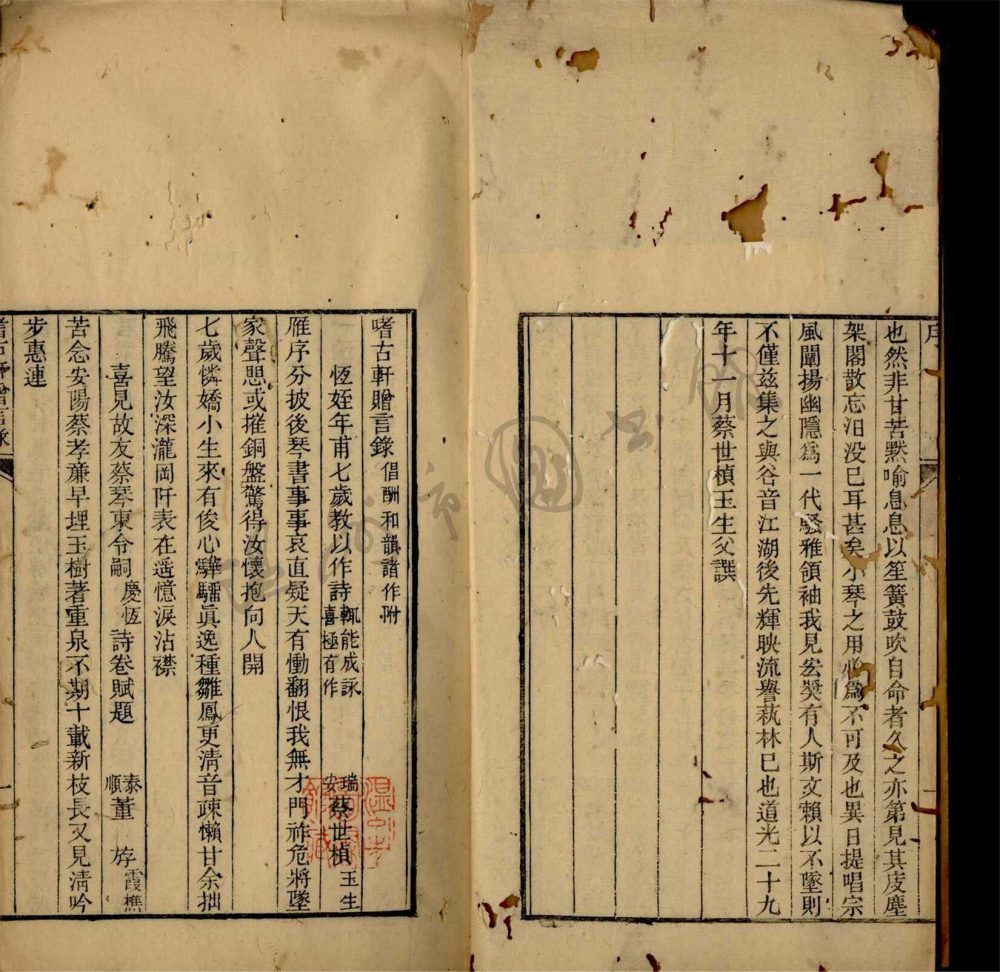 序
也然非甘苦默喻息息以笙簧鼓吹自命者久之亦第見其庋塵
架閣散忘汨没已耳甚矣小琴之用心為不可及也異日提唱宗
風闡揚幽隱為一代騷雅領袖我見宏奬有人斯文賴以不墜則
不僅兹集之與谷音江湖後先輝映流譽萟林已也道光二十九
年十一月蔡世楨玉生父譔
嗜古軒贈言錄 倡酬和韻諸作附
恆姪年甫七歲教以作詩 輒能成詠 喜極有作 瑞安 蔡世楨 玉生
雁序分披後琴書事事哀直疑天有慟翻恨我無才門祚危將墜
家聲思或摧銅盤驚得汝懷抱向人開
七歲憐嬌小生來有俊心驊騮眞逸種雛鳳更清音疎懶甘余拙
飛騰望汝深瀧岡阡表在遥憶淚沾襟
喜見故友蔡琴東令嗣 慶恆 詩卷賦題 泰順 董斿 霞樵
苦念安陽蔡孝廉早埋玉樹著重泉不期十載新枝長又見淸吟
步惠連
嗜古軒贈言錄 一